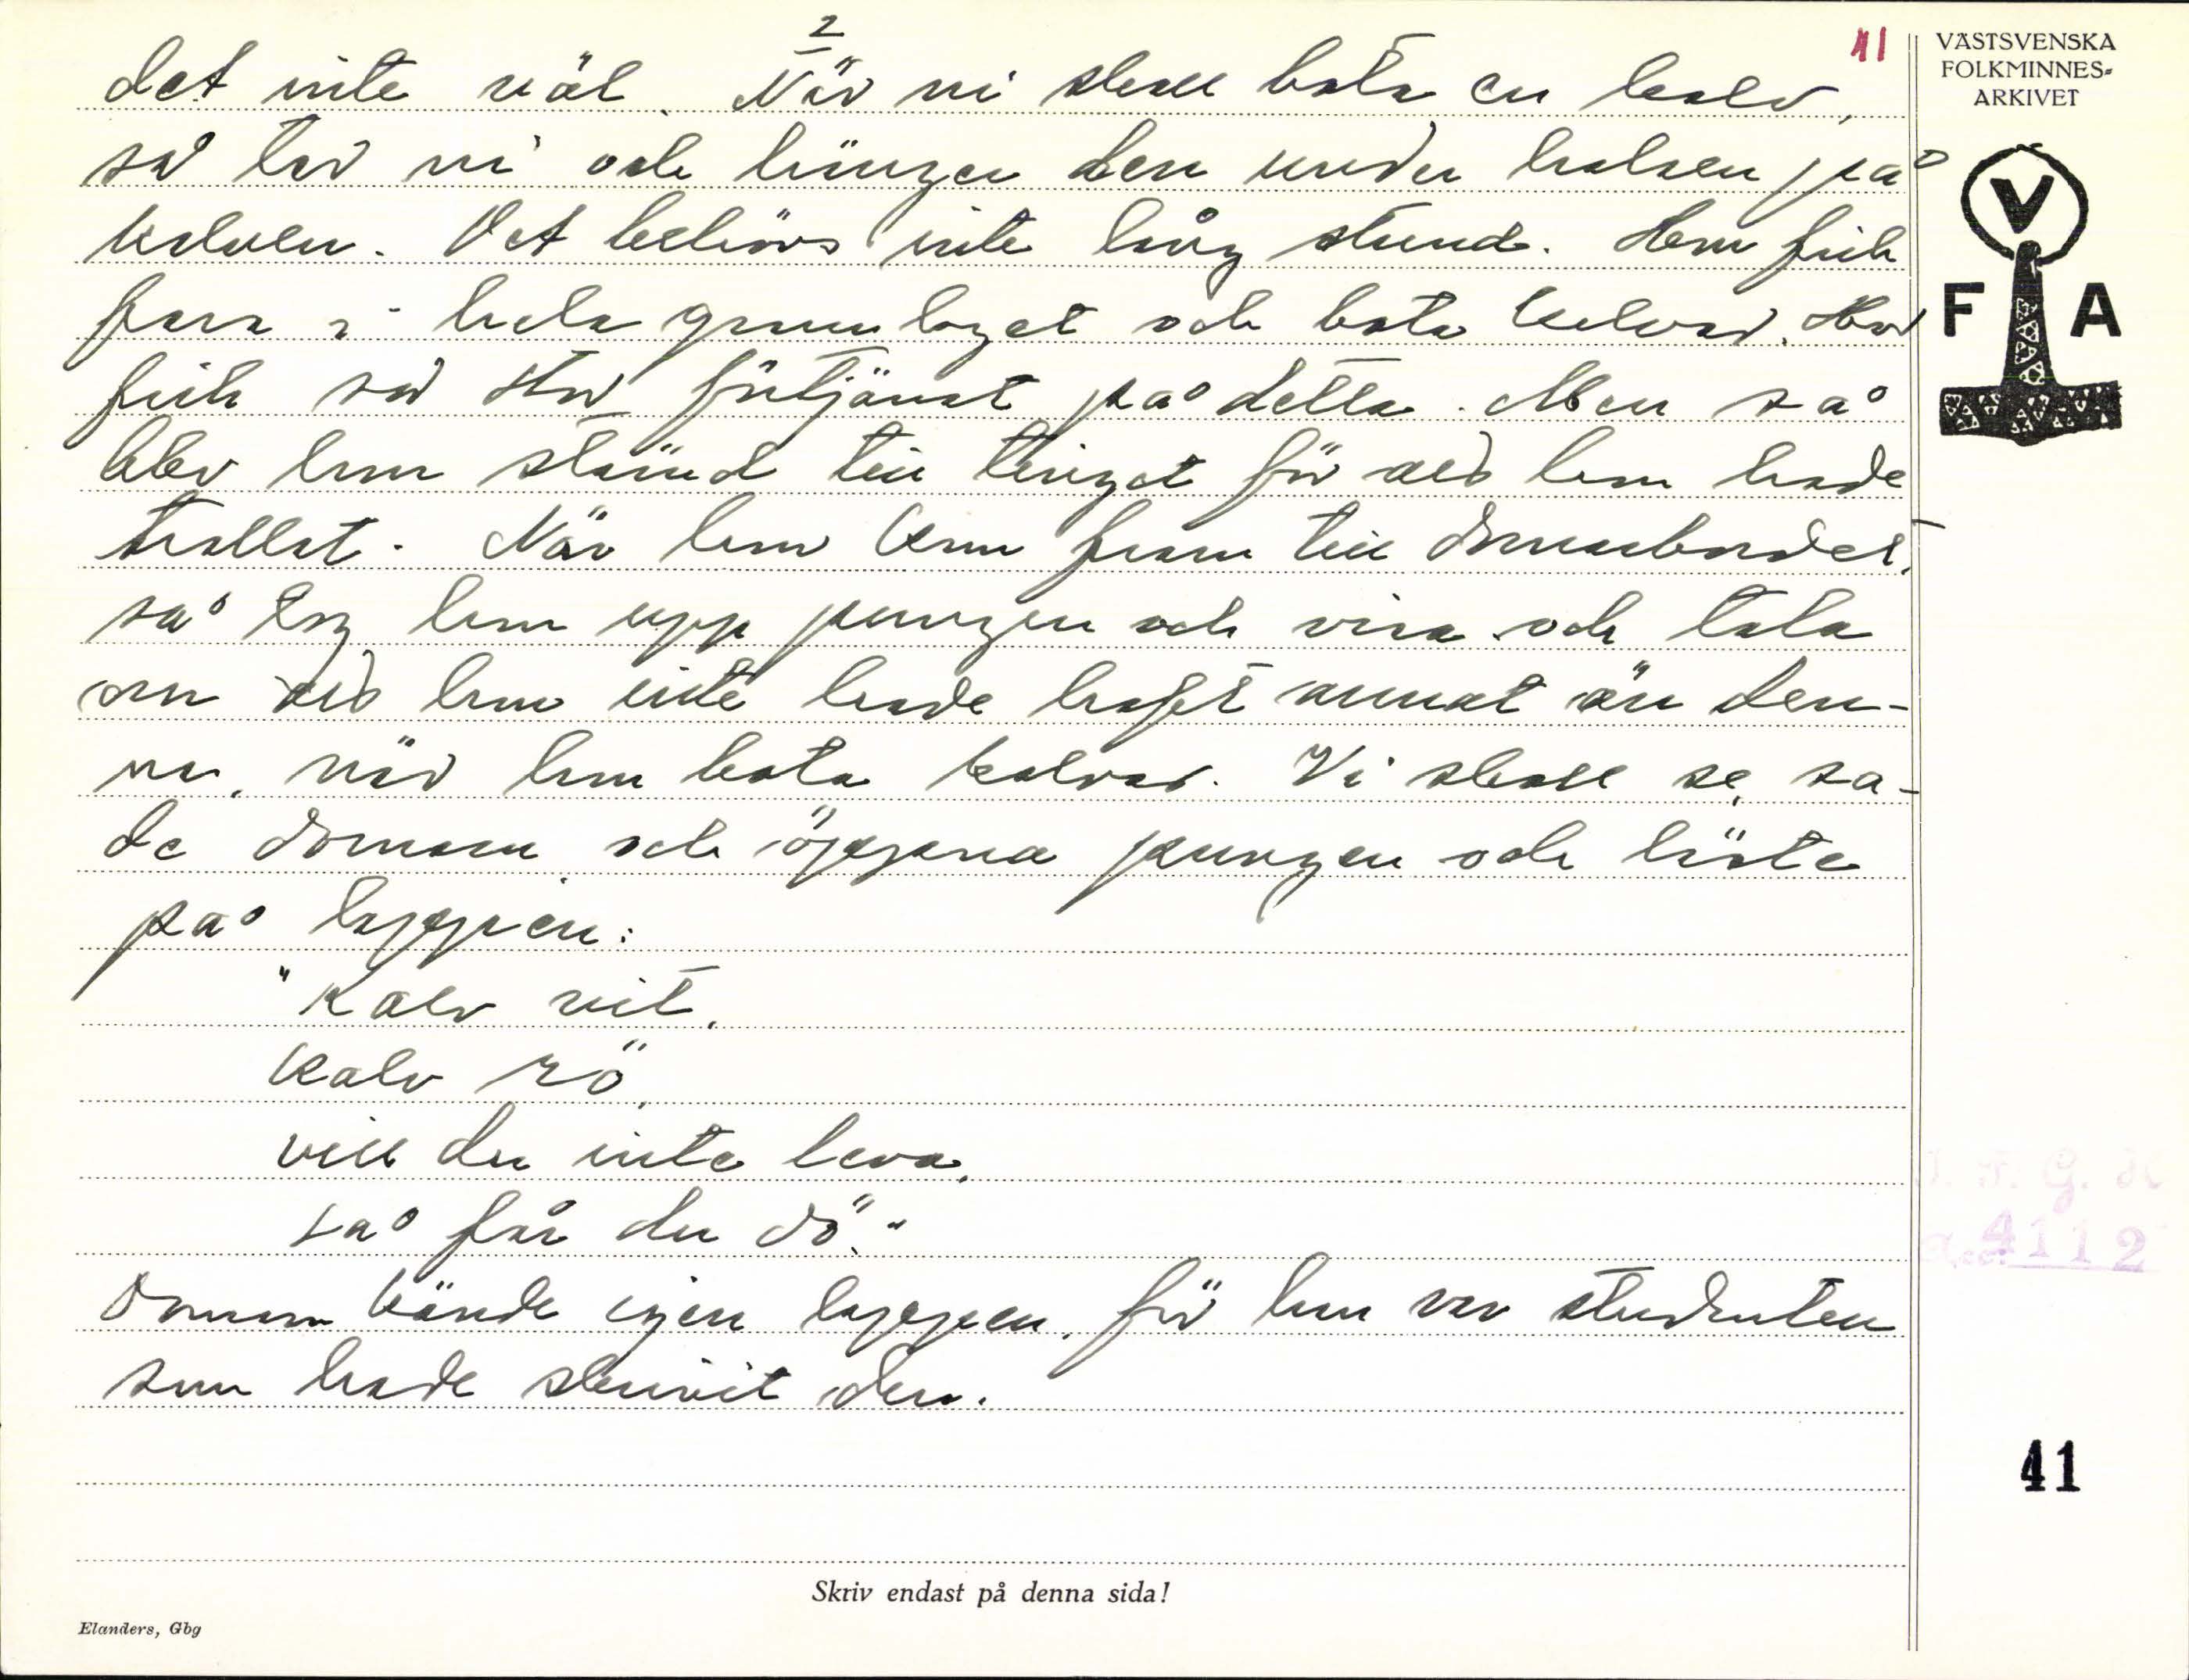 2
41
det inte väl. När ni skall bota en kalv,
så tar ni och hänger den under halsen på
kalven. Det behövs inte lång stund. Hon fick
fara i hela grannlaget och bota kalvar. Hon
fick så stor förtjänst på detta. Men så
blev hon stämd till tinget för att hon hade
trollat. När hon kom fram till domarbordet,
så tog hon upp pungen och visa och tala
om att hon inte hade haft annat än den-
na, när hon bota kalvar. Vi skall se, sa-
de domarn och öppna pungen och läste
på lappen:
"Kalv vit,
Kalv rö,
vill du inte leva,
så får du dö."
Domarn kände igen lappen, för han var studenten
som hade skrivit den.
VÄSTSVENSKA
FOLKMINNES-
ARKIVET
V
F A
4112
41
Skriv endast på denna sida!
Elanders, Gbg